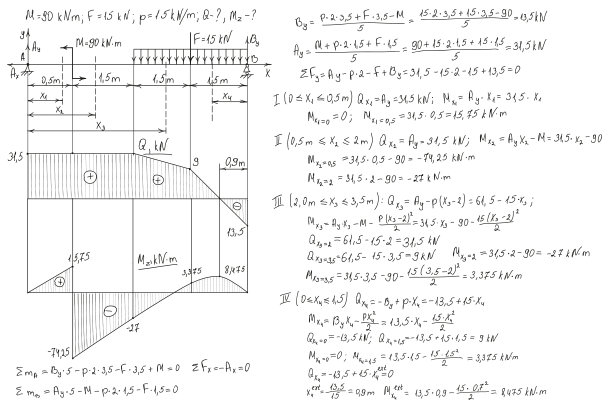 M=90 kNm, F=15 kN; p=15 kN/m; Q-?, Mz-?
y
Ay
M=90 kN·m
F=15 kN
By
A
B
Ax
x
0,5m
1,5m
1,5m
1,5m
x1
x4
x2
x3
Q, kN
31,5
9
0,9m
+
+
−
13,5
Mz, kN·m
15,75
3,375
8,475
+
−
-27
-74,25
ΣmA = By·5-p·2·3,5-F·3,5+M=0 ΣFx=-Ax=0
ΣmB = Ay·5-M-p·2·1,5-F·1,5=0
By = (p·2·3,5+F·3,5-M)/5 = (15·2·3,5+15·3,5-90)/5 = 13,5 kN
Ay = (M+p·2·1,5+F·1,5)/5 = (90+15·2·1,5+15·1,5)/5 = 31,5 kN
ΣFy=Ay-p·2-F+By=31,5-15·2-15+13,5=0
I (0≤x1≤0,5m) Qx1=Ay=31,5 kN; Mx1=Ay·x1=31,5·x1
Mx1=0=0; Mx1=0,5=31,5·0,5=15,75 kN·m
II (0,5m≤x2≤2m) Qx2=Ay=31,5 kN; Mx2=Ay x2-M=31,5·x2-90
Mx2=0,5=31,5·0,5-90=-74,25 kN·m
Mx2=2=31,5·2-90=-27 kN·m
III (2,0m≤x3≤3,5m): Qx3=Ay-p(x3-2)=61,5-15·x3;
Mx3=Ay x3-M-p(x3-2)²/2=31,5x3-90-15(x3-2)²/2
Qx3=2=61,5-15·2=31,5 kN
Qx3=3,5=61,5-15·3,5=9 kN Mx3=2=31,5·2-90=-27 kN·m
Mx3=3,5=31,5·3,5-90-15(3,5-2)²/2=3,375 kN·m
IV (0≤x4≤1,5) Qx4=-By+p·x4=-13,5+15·x4
Mx4=By x4-px4²/2=13,5·x4-15·x4²/2
Qx4=0=-13,5 kN; Qx4=1,5=-13,5+15·1,5=9 kN
Mx4=0=0; Mx4=1,5=13,5·1,5-15·1,5²/2=3,375 kN·m
Qx4=-13,5+15·x4ext=0
x4ext=13,5/15=0,9m Mx4ext=13,5·0,9-15·0,7²/2=8,475 kN·m